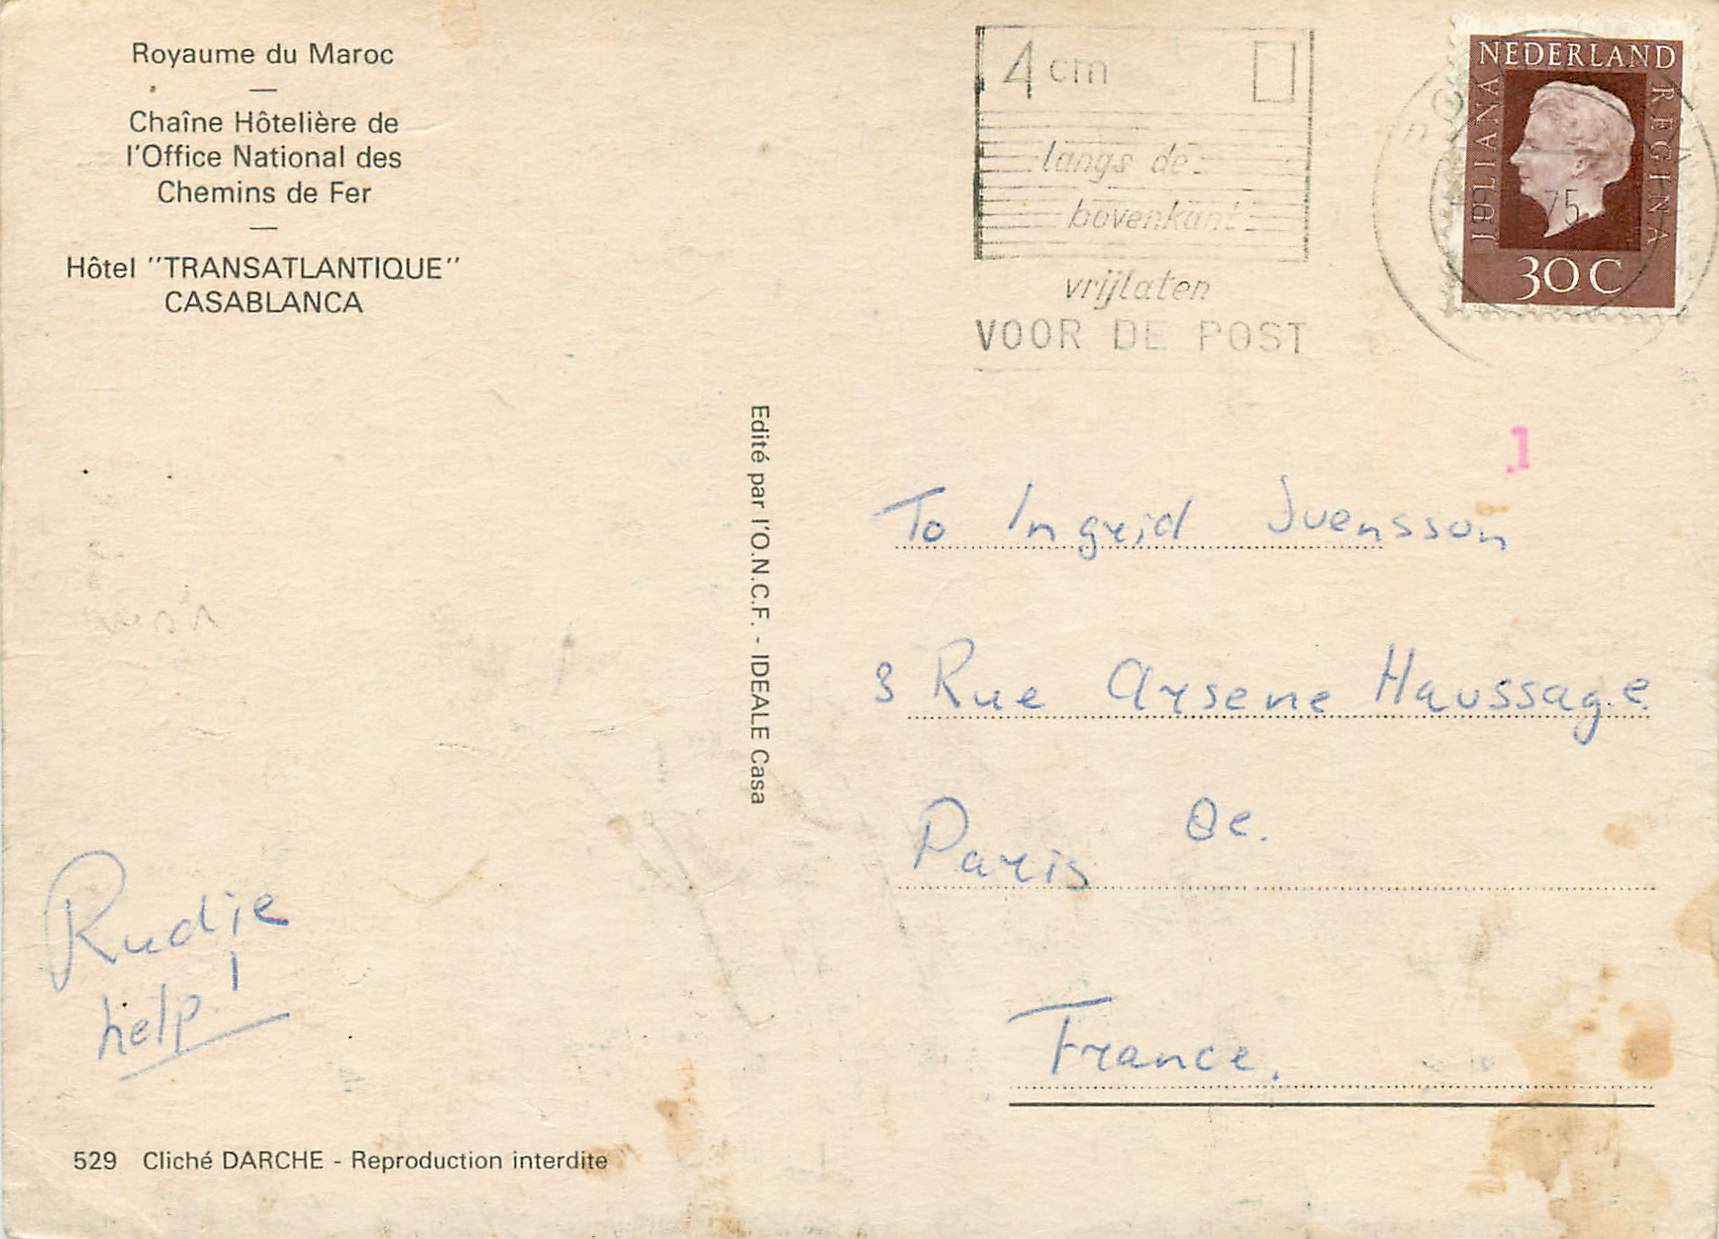 Royaume du Maroc
—
Chaîne Hôtelière de
l'Office National des
Chemins de Fer
—
Hôtel "TRANSATLANTIQUE"
CASABLANCA
4 cm
langs de
bovenkant
vrijlaten
VOOR DE POST
NEDERLAND
JULIANA
REGINA
75
30 C
1
Edité par l'O.N.C.F. - IDEALE Casa
To Ingrid Svensson
3 Rue Arsene Haussage
Paris 8e.
France.
Rudje
help!
529 Cliché DARCHE - Reproduction interdite